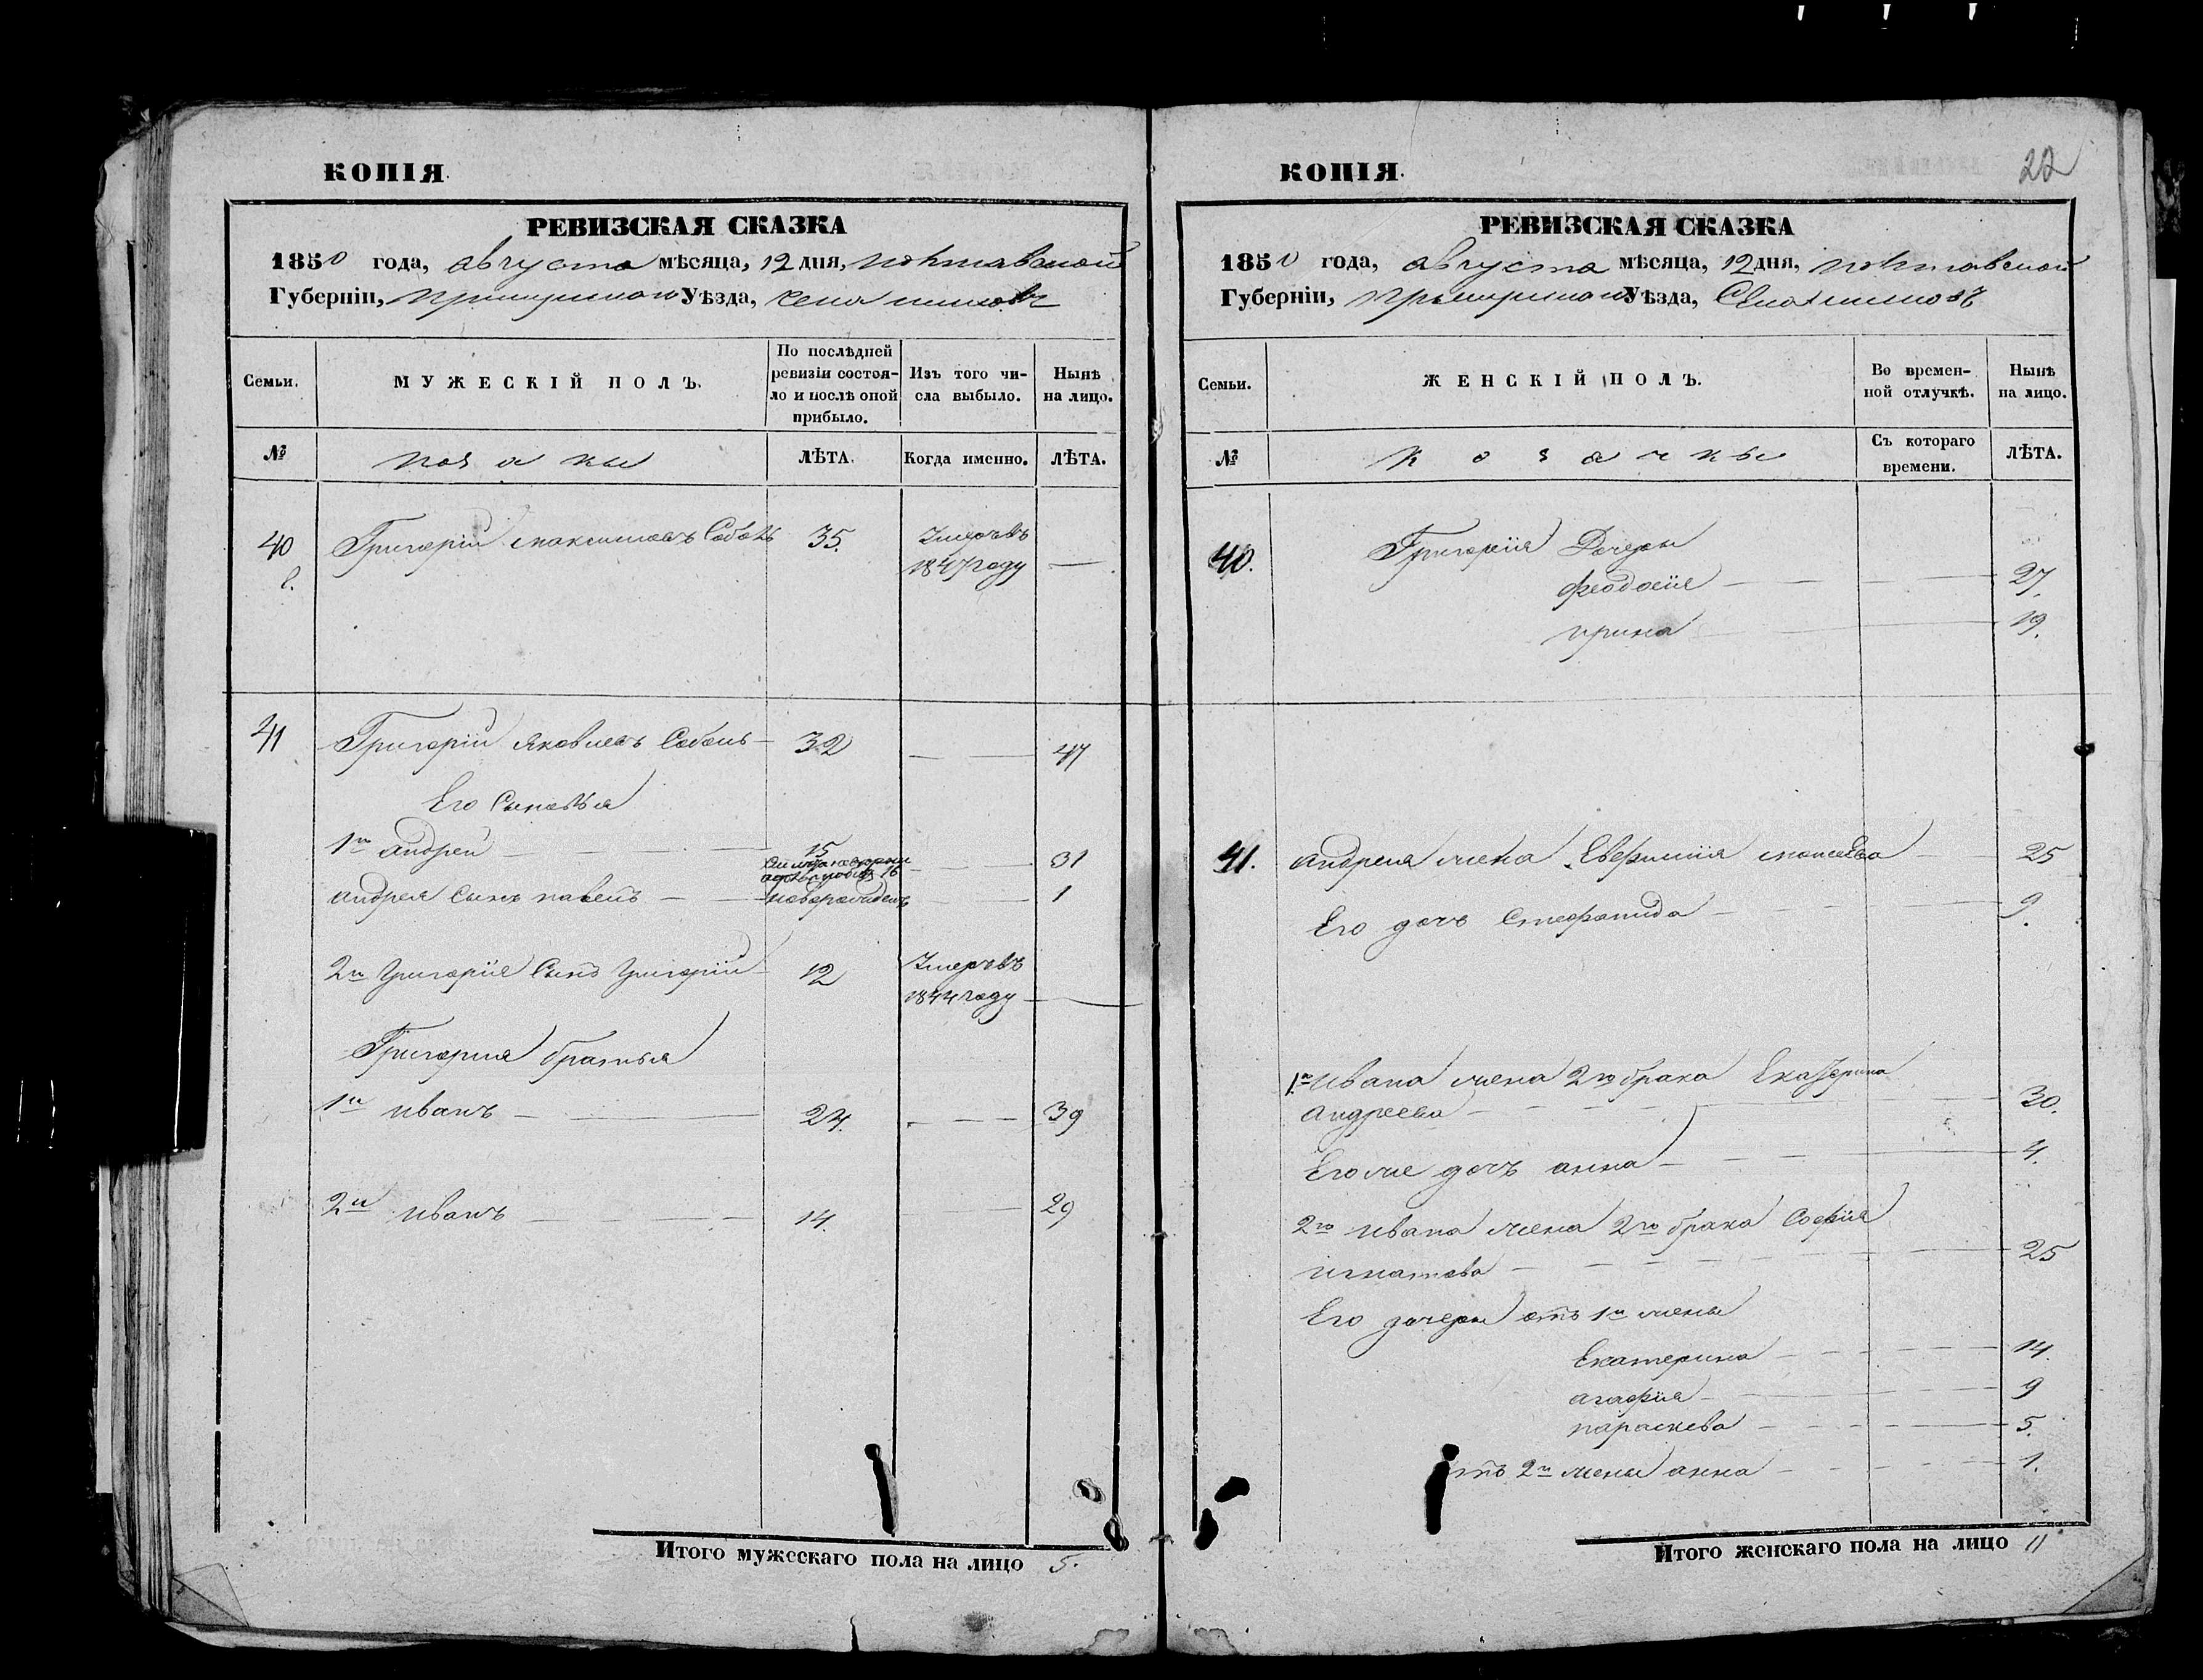 КОПІЯ.
РЕВИЗСКАЯ СКАЗКА
1850 года, августа мѣсяца, 12 дня, полтавской
Губерніи, Уѣзда, села
Семьи.
МУЖЕСКІЙ ПОЛЪ.
По послѣдней ревизіи состоя-
ло и послѣ оной прибыло.
Изъ того чи-
сла выбыло.
Нынѣ
на лицо.
№
козаки
ЛѢТА.
Когда именно.
ЛѢТА.
40 Григорій максимовъ Соболь 35. Умеръ въ
1847 году —
41 Григорій Яковлевъ Соболь 32 — 47
Его Сыновья
1й андрей — 15 — 31
андрея Сынъ павелъ — новорожденъ — 1
2й Григорія Сынъ Григорій 12 Умеръ въ
1844 году —
Григорія братья
1й иванъ — 24. — 39
2й иванъ — 14. — 29
Итого мужескаго пола на лицо 5.
КОПІЯ.
22
РЕВИЗСКАЯ СКАЗКА
1850 года, августа мѣсяца, 12 дня, полтавской
Губерніи, Уѣзда, Села
Семьи.
ЖЕНСКІЙ ПОЛЪ.
Во времен-
ной отлучкѣ.
Нынѣ
на лицо.
№
козачки
Съ котораго
времени.
ЛѢТА.
40. Григорія Дочери
феодосія — 27.
ирина — 19.
41. андрея жена Евфимія моисеева — 25
Его дочь Стефанида — 9.
1го ивана жена 2го брака Екатерина
андреева — 30.
Его же дочь анна — 4.
2го ивана жена 2го брака Софія
игнатова — 25
Его дочери отъ 1й жены
Екатерина — 14.
агафія — 9
параскева — 5.
отъ 2й жены анна — 1.
Итого женскаго пола на лицо 11